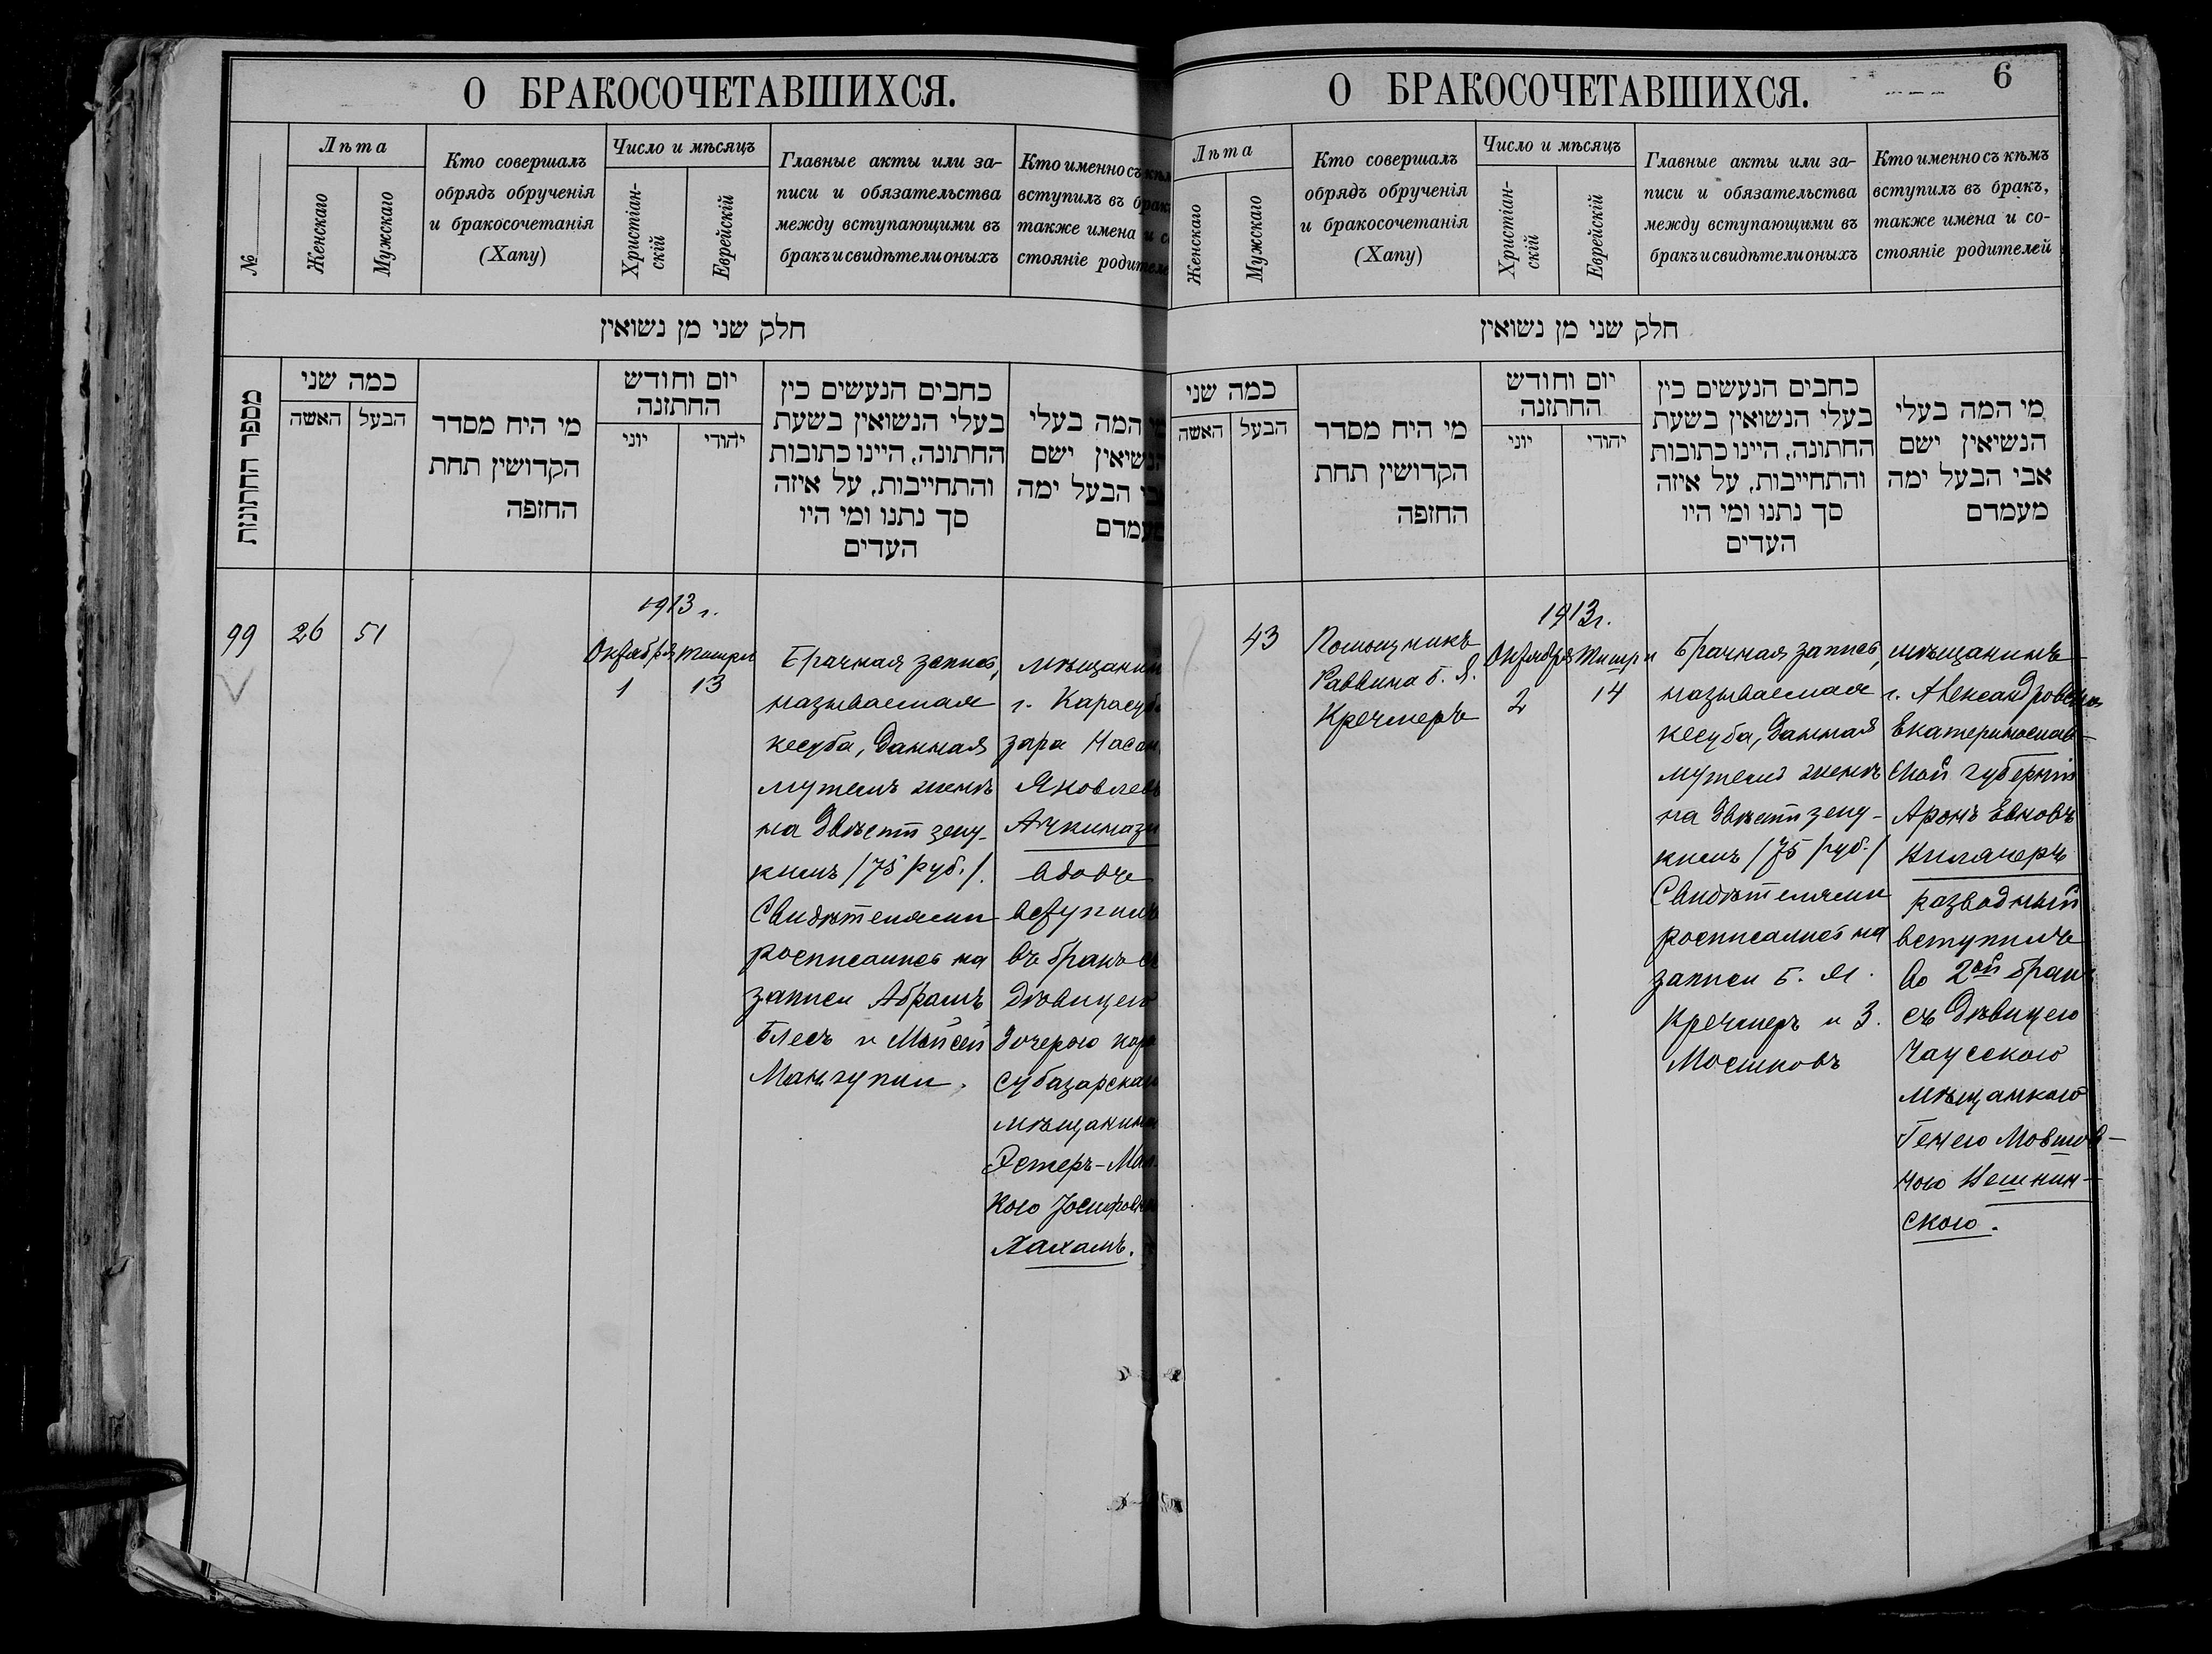 О БРАКОСОЧЕТАВШИХСЯ.
№
Лѣта
Женскаго
Мужскаго
Кто совершалъ
обрядъ обрученія
и бракосочетанія
(Хапу)
Число и мѣсяцъ
Христіан-
скій
Еврейскій
Главные акты или за-
писи и обязательства
между вступающими въ
бракъ и свидѣтели оныхъ
Кто именно съ кѣм
вступилъ въ брак
также имена и с
стояніе родителе
חלק שני מן נשואין
מספר החתונות
כמה שני
האשה
הבעל
מי היח מסדר
הקדושין תחת
החזפה
יום וחודש
החתזנה
יוני
יהודי
כחבים הנעשים כין
בעלי הנשואין בשעת
החתונה, היינו כתובות
והתחייבות, על איזה
סך נתנו ומי היו
העדים
מי המה בעלי
הנשיאין ישם
אבי הבעל ימה
מעמדם
99
26
51
1913 г.
Октября
1
Тишри
13
Брачная запись,
называемая
кесуба, данная
мужемъ женѣ
на двѣсти зеку-
кимъ /75 руб./.
Свидѣтелями
росписались на
записи Абрамъ
Блесъ и Мойсей
Мангупли.
мѣщанин
г. Карасуб
зара Насан
Яковлев
Ачкинази
вдовъ
вступилъ
въ бракъ съ
дѣвицею
дочерью кара
субазарскаг
мѣщанина
Эстеръ-Мал
кою Іосифовн
Хахамъ.
О БРАКОСОЧЕТАВШИХСЯ.
6
Лѣта
Женскаго
Мужскаго
Кто совершалъ
обрядъ обрученія
и бракосочетанія
(Хапу)
Число и мѣсяцъ
Христіан-
скій
Еврейскій
Главные акты или за-
писи и обязательства
между вступающими въ
бракъ и свидѣтели оныхъ
Кто именно съ кѣмъ
вступилъ въ бракъ,
также имена и со-
стояніе родителей
חלק שני מן נשואין
כמה שני
האשה
הבעל
מי היח מסדר
הקדושין תחת
החזפה
יום וחודש
החתזנה
יוני
יהודי
כחבים הנעשים כין
בעלי הנשואין בשעת
החתונה, היינו כתובות
והתחייבות, על איזה
סך נתנו ומי היו
העדים
מי המה בעלי
הנשיאין ישם
אבי הבעל ימה
מעמדם
43
Помощникъ
Раввина Б. Я.
Кречмеръ
1913 г.
Октября
2
Тишри
14
Брачная запись,
называемая
кесуба, данная
мужемъ женѣ
на двѣсти зеку-
кимъ /75 руб./
Свидѣтелями
росписались на
записи Б. Я.
Кречмеръ и З.
Мосинковъ
мѣщанинъ
г. Александровска
Екатеринослав-
ской губерніи
Аронъ Евновъ
разводный
вступилъ
во 2ой бракъ
съ дѣвицею
Чаусскою
мѣщанкою
Генею Мовшов-
ною
скою.